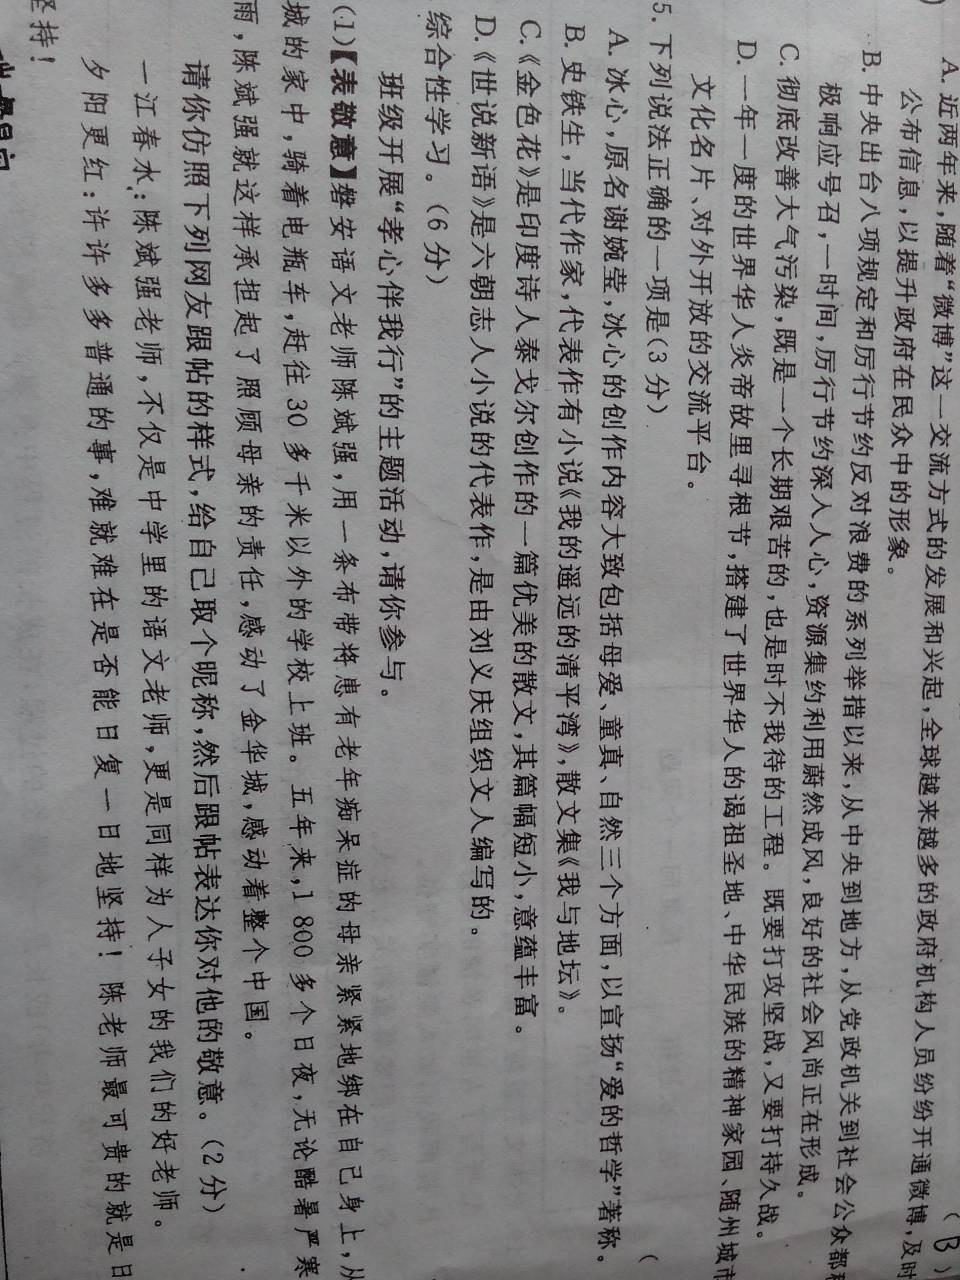 （B）
A. 近两年来，随着“微博”这一交流方式的发展和兴起，全球越来越多的政府机构人员纷纷开通微博，及时
公布信息，以提升政府在民众中的形象。
B. 中央出台八项规定和厉行节约反对浪费的系列举措以来，从中央到地方，从党政机关到社会公众都积
极响应号召，一时间，厉行节约深入人心，资源集约利用蔚然成风，良好的社会风尚正在形成。
C. 彻底改善大气污染，既是一个长期艰苦的，也是时不我待的工程。既要打攻坚战，又要打持久战。
D. 一年一度的世界华人炎帝故里寻根节，搭建了世界华人的谒祖圣地、中华民族的精神家园、随州城市
文化名片、对外开放的交流平台。
5. 下列说法正确的一项是（3 分） （
A. 冰心，原名谢婉莹，冰心的创作内容大致包括母爱、童真、自然三个方面，以宣扬“爱的哲学”著称。
B. 史铁生，当代作家，代表作有小说《我的遥远的清平湾》，散文集《我与地坛》。
C.《金色花》是印度诗人泰戈尔创作的一篇优美的散文，其篇幅短小，意蕴丰富。
D.《世说新语》是六朝志人小说的代表作，是由刘义庆组织文人编写的。
综合性学习。（6 分）
班级开展“孝心伴我行”的主题活动，请你参与。
（1）【表敬意】磐安语文老师陈斌强，用一条布带将患有老年痴呆症的母亲紧紧地绑在自己身上，从
城的家中，骑着电瓶车，赶往 30 多千米以外的学校上班。五年来，1 800 多个日夜，无论酷暑严寒
雨，陈斌强就这样承担起了照顾母亲的责任，感动了金华城，感动着整个中国。
请你仿照下列网友跟帖的样式，给自己取个昵称，然后跟帖表达你对他的敬意。（2 分）
一江春水：陈斌强老师，不仅是中学里的语文老师，更是同样为人子女的我们的好老师。
夕阳更红：许许多多普通的事，难就难在是否能日复一日地坚持！陈老师最可贵的就是日
坚持！